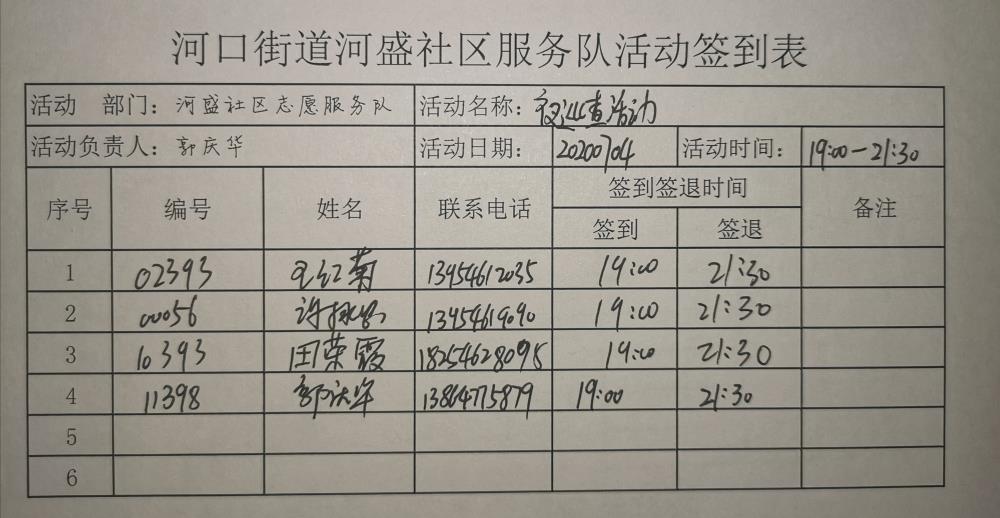 河口街道河盛社区服务队活动签到表
活动 部门：河盛社区志愿服务队 活动名称：夜巡查活动
活动负责人：郭庆华 活动日期： 20200704 活动时间： 19:00-21:30
序号 编号 姓名 联系电话 签到签退时间 备注
签到 签退
1 02393 王红菊 13954612035 19:00 21:30
2 00056 许 13454619090 19:00 21:30
3 10393 田荣霞 18254628095 19:00 21:30
4 11398 郭庆华 13864775879 19:00 21:30
5
6